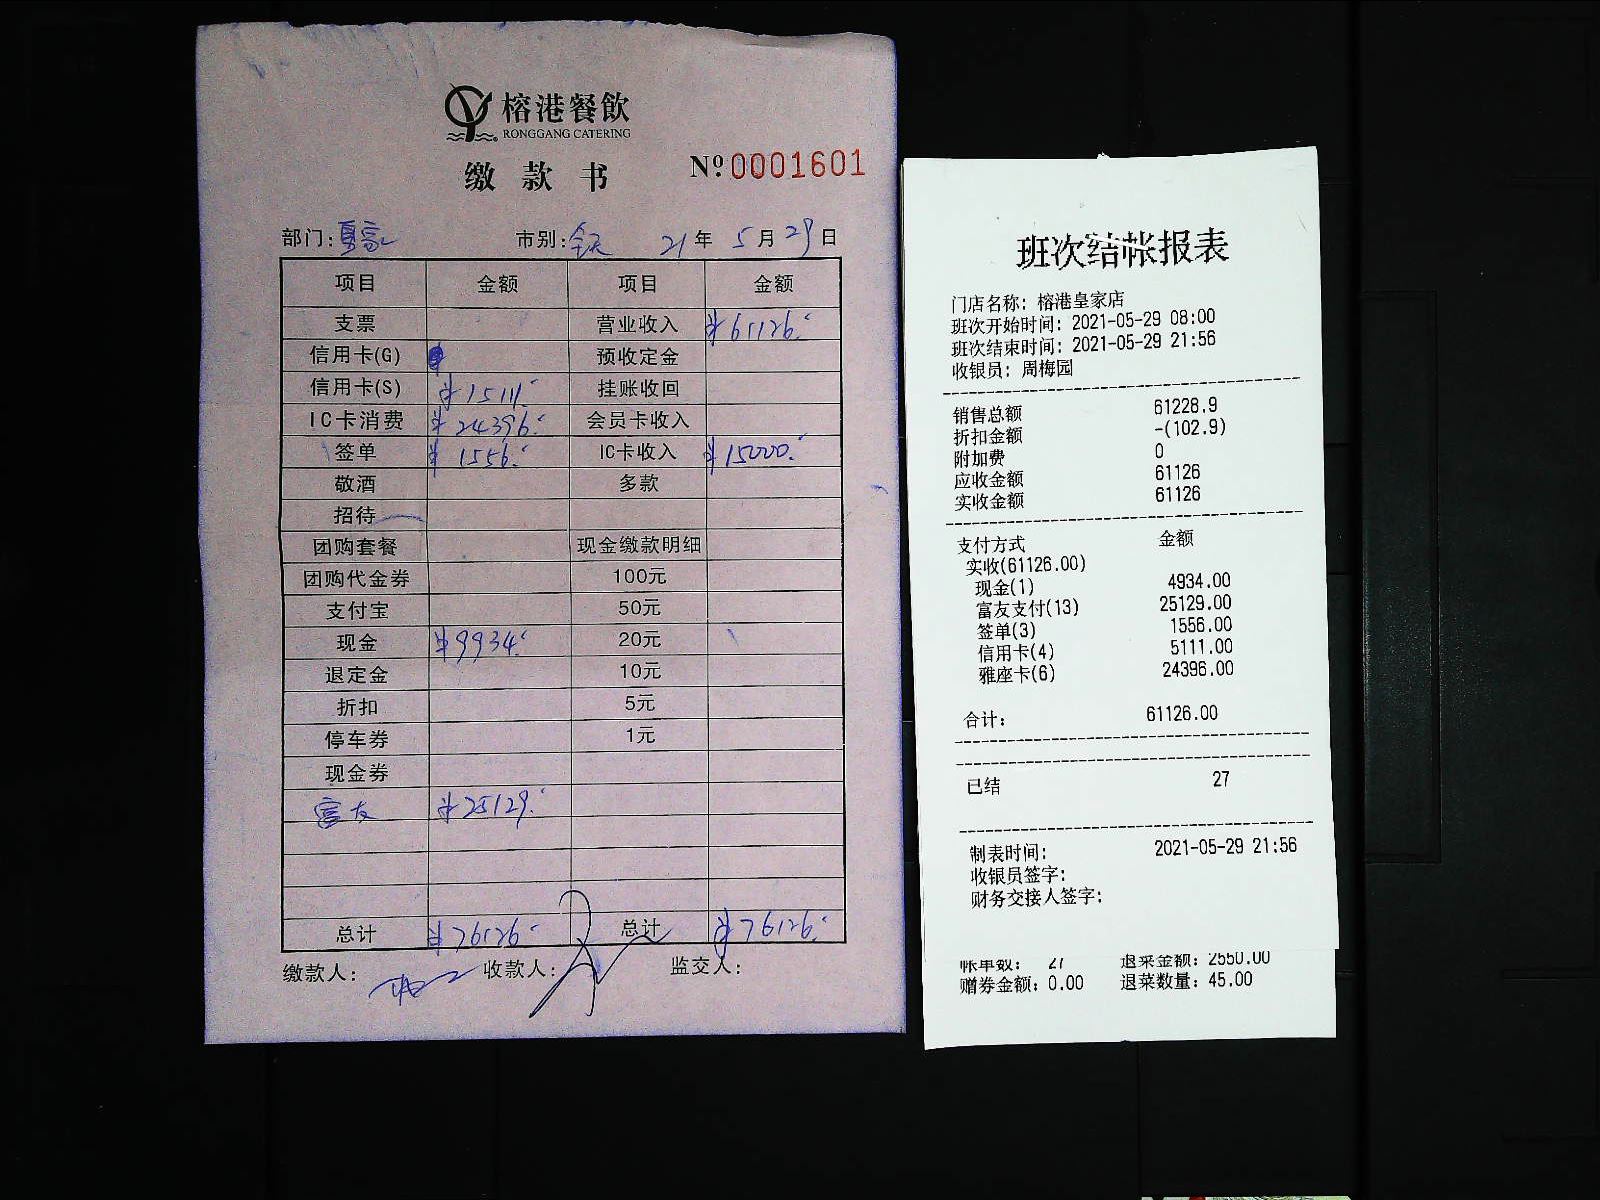 榕港餐飲
RONGGANG CATERING
缴款书 Nº 0001601
部门: 皇家 市别: 全天 21年 5月29日
项目 金额 项目 金额
支票 营业收入 ¥61126.
信用卡(G) 预收定金
信用卡(S) ¥15111. 挂账收回
IC卡消费 ¥24396. 会员卡收入
签单 ¥1556. IC卡收入 ¥15000.
敬酒 多款
招待
团购套餐 现金缴款明细
团购代金券 100元
支付宝 50元
现金 ¥9934. 20元
退定金 10元
折扣 5元
停车券 1元
现金券
富友 ¥25129.
总计 ¥76126. 总计 ¥76126.
缴款人: 收款人: 监交人:
班次结帐报表
门店名称: 榕港皇家店
班次开始时间: 2021-05-29 08:00
班次结束时间: 2021-05-29 21:56
收银员: 周梅园
销售总额 61228.9
折扣金额 -(102.9)
附加费 0
应收金额 61126
实收金额 61126
支付方式 金额
实收(61126.00)
现金(1) 4934.00
富友支付(13) 25129.00
签单(3) 1556.00
信用卡(4) 5111.00
雅座卡(6) 24396.00
合计: 61126.00
已结 27
制表时间: 2021-05-29 21:56
收银员签字:
财务交接人签字:
帐单数: 27 退菜金额: 2550.00
赠券金额: 0.00 退菜数量: 45.00